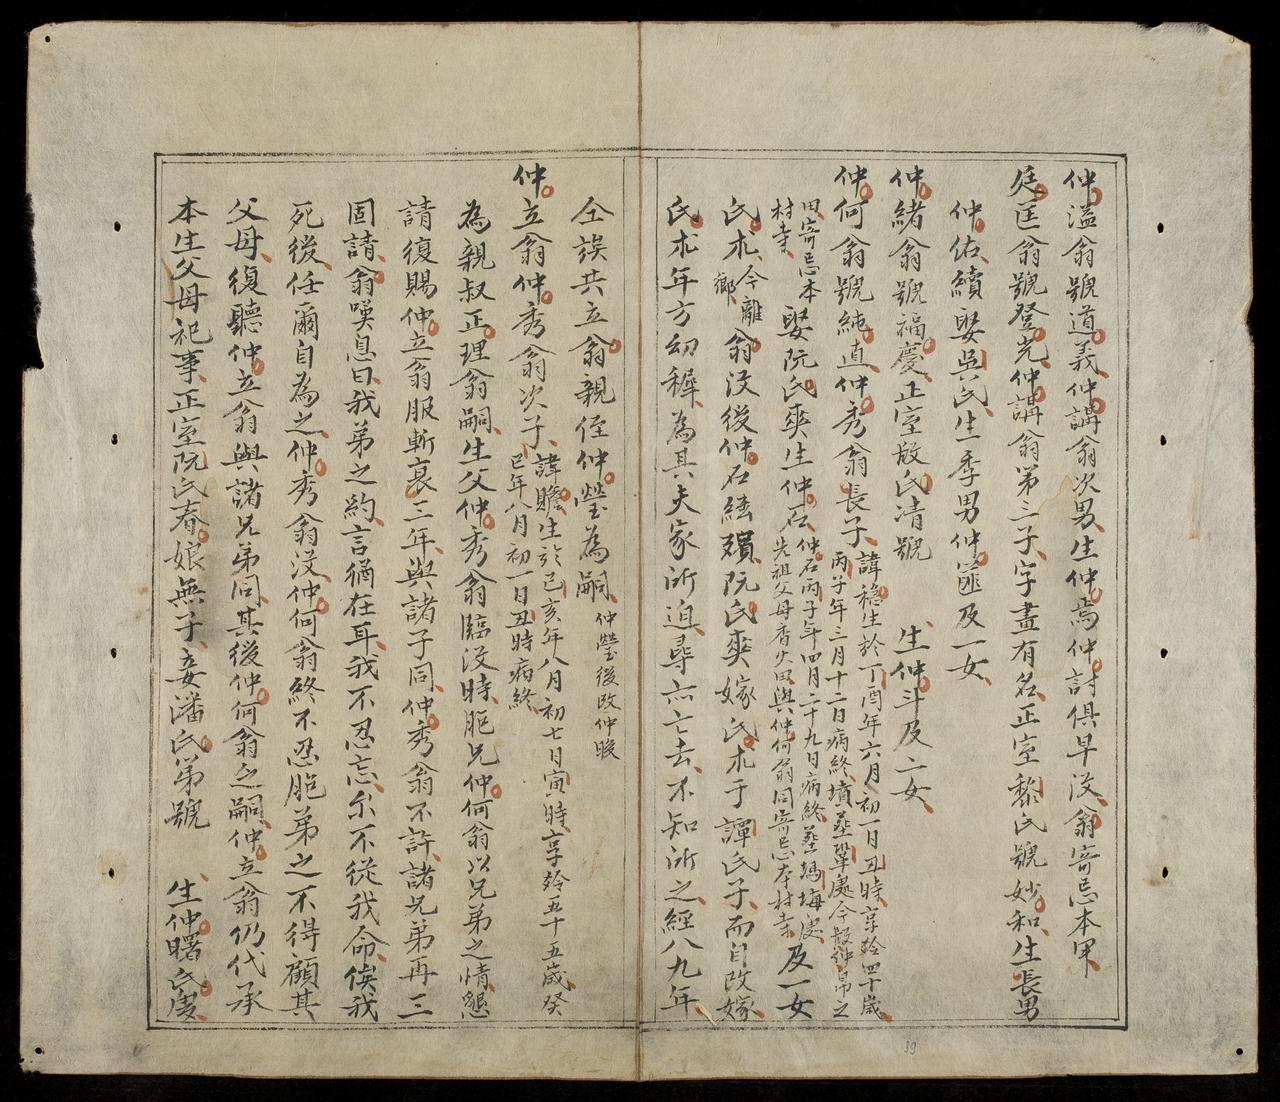 仲溢翁號道義仲講翁次男生仲焉仲討俱早没翁寄忌本甲
廷匡翁號登光仲講翁第三子字畫有名正室黎氏號妙和生長男
仲佑續娶吳氏生季男仲匪及一女
仲緒翁號福慶正室殷氏清號 生仲斗及二女
仲何翁號純直仲秀翁長子
諱穩生於丁酉年六月初一日丑時享齡四十歲
丙子年三月十二日病終墳葬鞏處今散仲帛之
田寄忌本
村寺
娶阮氏爽生仲石
仲石丙子年四月二十九日病終葬塢塸處
先祖父母香火田與仲何翁同寄忌本村寺
及一女
氏朮
今離
鄉
翁没後仲石繼殞阮氏爽嫁氏朮于譚氏子而自改嫁
氏朮年方幼穉為其夫家所迫尋亦亡去不知所之經八九年
仝族共立翁親侄仲瑩為嗣
仲瑩後改仲晙
仲立翁仲秀翁次子
諱贍生於己亥年八月初七日寅時享齡五十五歲癸
巳年八月初一日丑時病終
為親叔正理翁嗣生父仲秀翁臨没時胞兄仲何翁以兄弟之情懇
請復賜仲立翁服斬衰三年與諸子同仲秀翁不許諸兄弟再三
固請翁嘆息曰我弟之約言猶在耳我不忍忘尔不從我命俟我
死後任爾自為之仲秀翁没仲何翁終不忍胞弟之不得顧其
父母復聽仲立翁與諸兄弟同其後仲何翁乏嗣仲立翁仍代承
本生父母祀事正室阮氏春娘無子妾潘氏弟號 生仲曙氏慶